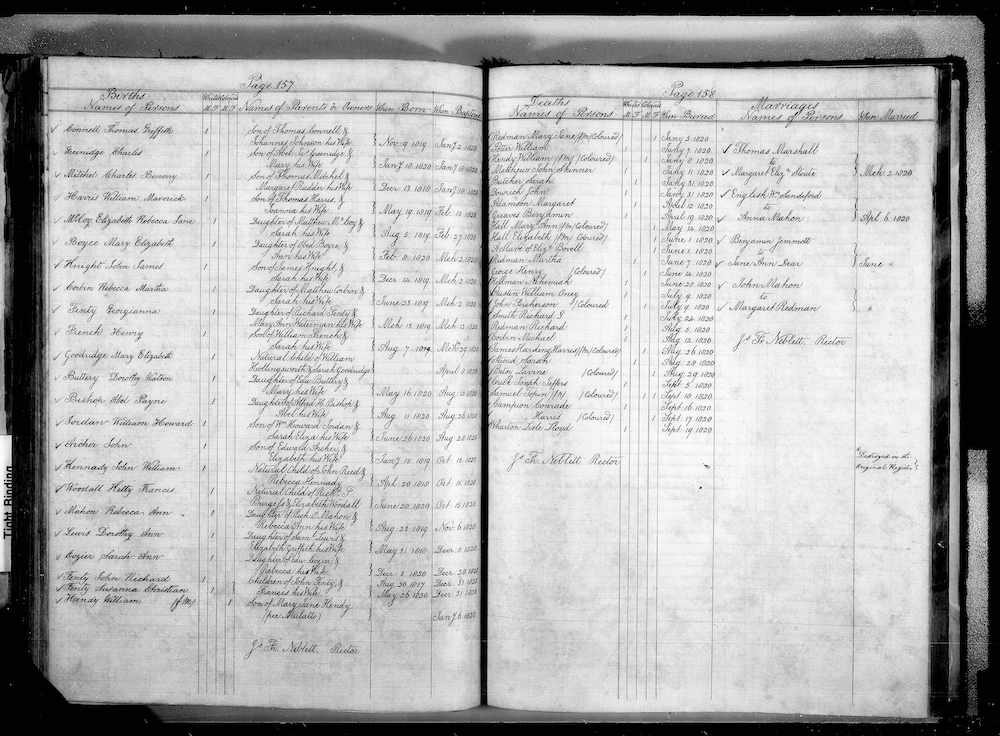 Page 157
Births
Names of Persons
Whites Colored
M F M F
Names of Parents or Owners
When Born
When Baptized
Connell Thomas Griffith 1 Son of Thomas Connell &
Johannes Johnson his Wife Nov. 9 1819 Jany. 2 1820
Greenidge Charles 1 Son of Abel W. Greenidge &
Mary his Wife Jany. 10 1820 Jany. 10 1820
Mitchel Charles Benony 1 Son of Thomas Mitchel &
Margaret Rudder his Wife Decr. 3 1810 Jany. 30 1820
Harris William Maverick 1 Son of Thomas Harris &
Joanna his Wife May 19 1819 Feb. 12 1820
McCloy Elizabeth Rebecca Jane 1 Daughter of Matthew McCloy &
Sarah his Wife Aug. 5 1819 Feb. 27 1820
Boyce Mary Elizabeth 1 Daughter of Abel Boyce &
Ann his Wife Feb. 11 1820 Mch. 2 1820
Knight John James 1 Son of James Knight &
Sarah his Wife Decr. 14 1819 Mch. 2 1820
Corbin Rebecca Martha 1 Daughter of Matthew Corbin &
Sarah his Wife June 23 1819 Mch. 2 1820
Fenty Georgianna 1 Daughter of Richard Fenty &
Mary Ann Bateman his Wife Mch. 13 1819 Mch. 12 1820
French Henry 1 Son of William French &
Sarah his Wife Aug. 7 1819 Mch. 29 1820
Goodridge Mary Elizabeth 1 Natural Child of William
Hollingsworth & Sarah Goodridge April 2 1820
Buttery Dorothy Watson 1 Daughter of Edw. Buttery &
Mary his Wife May 16 1820 Aug. 13 1820
Bishop Abel Payne 1 Daughter of Alfred H. Bishop &
Abel his Wife Aug. 11 1820 Aug. 25 1820
Jordan William Howard 1 Son of Wm. Howard Jordan &
Sarah Eliza his Wife June 26 1820 Aug. 28 1820
Archer John 1 Son of Edward Archer &
Elizabeth his Wife Jany. 10 1819 Oct. 12 1820
Kennady John William 1 Natural Child of John Reed &
Rebecca Kennady Apl. 20 1810 Oct. 15 1820
Woodall Hetty Francis 1 Natural Child of Richd. P.
Burgess & Elizabeth Woodall June 20 1820 Oct. 15 1820
Mahon Rebecca Ann 1 Daughter of Rich. D. Mahon &
Rebecca Ann his Wife Aug. 22 1819 Nov. 6 1820
Lewis Dorothy Ann 1 Daughter of Saml. Lewis &
Elizabeth Griffith his Wife May 21 1810 Decr. 11 1820
Cozier Sarah Ann 1 Daughter of Edw. Cozier &
Rebecca his Wife Decr. 1 1820 Decr. 30 1820
Fenty John Richard 1 Children of John Fenty & Aug. 30 1817 Decr. 31 1820
Fenty Susanna Christian 1 Frances his Wife May 26 1820 Decr. 31 1820
Hendy William (F M) 1 Son of Mary Jane Hendy
(free Mulatto) Jany. 6 1820
Js. Fr. Neblett Rector
Page 158
Deaths
Names of Persons
Whites Colored
M F M F
When Buried
Redman Mary Jane (fm) (Coloured) 1 Jany. 3 1820
Peter William 1 July 7 1820
Hendy William (fm) (Coloured) 1 July 8 1820
Mathews John Skinner 1 July 11 1820
Butcher Sarah 1 July 31 1820
Bowrich John 1 July 31 1820
Adamson Margaret 1 April 12 1820
Greaves Benjamin 1 April 19 1820
Hall Mary Ann (fm) (Coloured) 1 May 14 1820
Hall Elizabeth (fm) (Coloured) 1 June 1 1820
A Slave of Elizh. Bovell 1 June 1 1820
Redman Martha 1 June 7 1820
George Henry (Coloured) 1 June 14 1820
Hoffman Nehemiah 1 June 20 1820
Austin William Oney 1 July 9 1820
John Grierson (Coloured) 1 July 9 1820
Smith Richard J. 1 July 24 1820
Redman Richard 1 Aug. 5 1820
Boden Michael 1 Aug. 12 1820
James Harding Harris (fm) (Coloured) 1 Aug. 26 1820
Stroud Sarah 1 Aug. 28 1820
Palm Lavine (Coloured) 1 Aug. 29 1820
Coull Joseph Jeffers 1 Sept. 5 1820
Samuel Topin (M) (Coloured) 1 1 Sept. 10 1820
Sampson Conrade 1 Sept. 16 1820
Harris (Coloured) 1 Sept. 17 1820
Wharton Lisle Lloyd 1 Sept. 19 1820
Js. Fr. Neblett Rector
Marriages
Names of Persons
When Married
Thomas Marshall
to
Margaret Elizh. Stoute Mch. 2 1820
English Wm. Sandiford
to
Anna Mahon Apl. 6 1820
Benjamin Jemmott
to
Jane Ann Dear June "
John Mahon
to
Margaret Redman "
Js. Fr. Neblett Rector
Destroyed in the
Original Register
Tight Binding